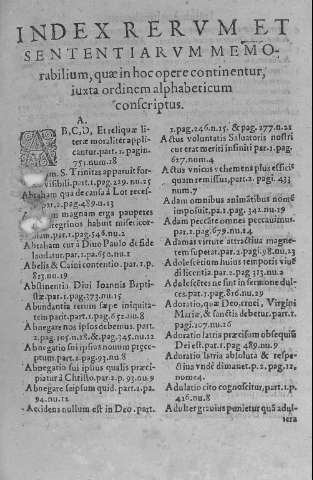 INDEX RERVM ET
SENTENTIARVM MEMO-
rabilium, quæ in hoc opere continentur,
iuxta ordinem alphabeticum
conscriptus.
A.
A B, C, D, Et reliquæ li-
teræ moraliter appli-
cantur. part. 1. pagin.
751. num. 18
S. Trinitas apparuit for-
visibili. part. 1. pag. 229. nu. 25
Abraham qua de causa à Lot reces-
par. 2. pag. 489. n. 13
magnam erga pauperes
peregrinos habuit miseri cor-
par. 1. pag. 546. nu. 2
Abraham cur à Diuo Paulo de fide
laudatur. par. 1. pa. 650. nu. 1
Abelis & Caini contentio. par. 1. p.
817. nu. 19
Abstinentia Diui Ioannis Bapti-
stæ. par. 1. pag. 373. nu. 15
Abundantia rerum sæpe iniquita-
tem parit. part. 1. pag. 652. nu. 8
Abnegare nos ipsos debemus. part.
2. pag. 105. n. 18. & pag. 745. nu. 12
Abnegatio sui ipsius nouum præce-
ptum. part. 1. pag. 93. nu. 8
Abnegatio sui ipsius qualis præci-
piatur à Christo. par. 2. p. 93. nu. 9
Abnegare seipsum quid. part. 1. pa.
94. nu. 12
Accidens nullum est in Deo. part.
1. pag. 246. n. 15. & pag. 277. n. 21
Actus voluntatis Saluatoris nostri
cur erat meriti infiniti par. 1. pag.
627. num. 4
Actus vnicus vehemens plus efficit
quam remissus, part. 2. pagi. 433
num. 7
Adam omnibus animatibus nomē
imposuit, pa. 1. pag. 342. nu. 19
Adam peccāte omnes peccauimus.
par. 1. pag. 679. nu. 14
Adamas virtute attractiua magne-
tem superat. par. 2. pagi. 98. nu. 23
Adolescetium huius temporis viue
di licentia. par. 2. pag. 313. nu. 2
Adolescētes ne sint in sermone dul-
ces. pat. 1. pag. 816. nu. 29
Adoratio, quæ Deo, cruci, Virgini
Mariæ, & sanctis debetur. part. 1.
pagi. 107. nu. 16
Adoratio latriæ præcisum obsequiū
Dei est. pat. 1. pag. 489. nu. 9
Adoratio latria absoluta & respe-
ctiua vndè dimanet. p. 2. pag. 12.
num. 4.
Adulatio cito cognoscitur, part. 1. p.
416. nu. 8
Adulter grauius punietur quā adul-
tera